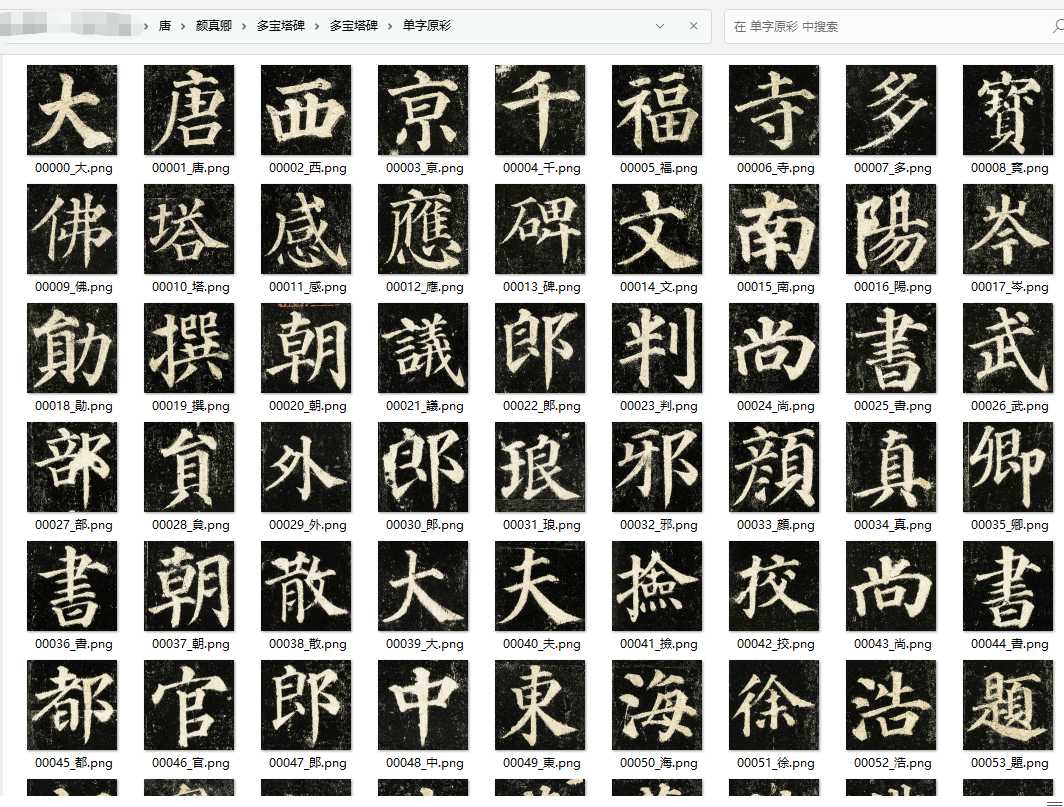 唐 › 颜真卿 › 多宝塔碑 › 多宝塔碑 › 单字原彩
在 单字原彩 中搜索
大 唐 西 京 千 福 寺 多 寶
00000_大.png 00001_唐.png 00002_西.png 00003_京.png 00004_千.png 00005_福.png 00006_寺.png 00007_多.png 00008_寶.png
佛 塔 感 應 碑 文 南 陽 岑
00009_佛.png 00010_塔.png 00011_感.png 00012_應.png 00013_碑.png 00014_文.png 00015_南.png 00016_陽.png 00017_岑.png
勛 撰 朝 議 郎 判 尚 書 武
00018_勛.png 00019_撰.png 00020_朝.png 00021_議.png 00022_郎.png 00023_判.png 00024_尚.png 00025_書.png 00026_武.png
部 員 外 郎 琅 邪 顏 真 卿
00027_部.png 00028_員.png 00029_外.png 00030_郎.png 00031_琅.png 00032_邪.png 00033_顏.png 00034_真.png 00035_卿.png
書 朝 散 大 夫 撿 挍 尚 書
00036_書.png 00037_朝.png 00038_散.png 00039_大.png 00040_夫.png 00041_撿.png 00042_挍.png 00043_尚.png 00044_書.png
都 官 郎 中 東 海 徐 浩 題
00045_都.png 00046_官.png 00047_郎.png 00048_中.png 00049_東.png 00050_海.png 00051_徐.png 00052_浩.png 00053_題.png